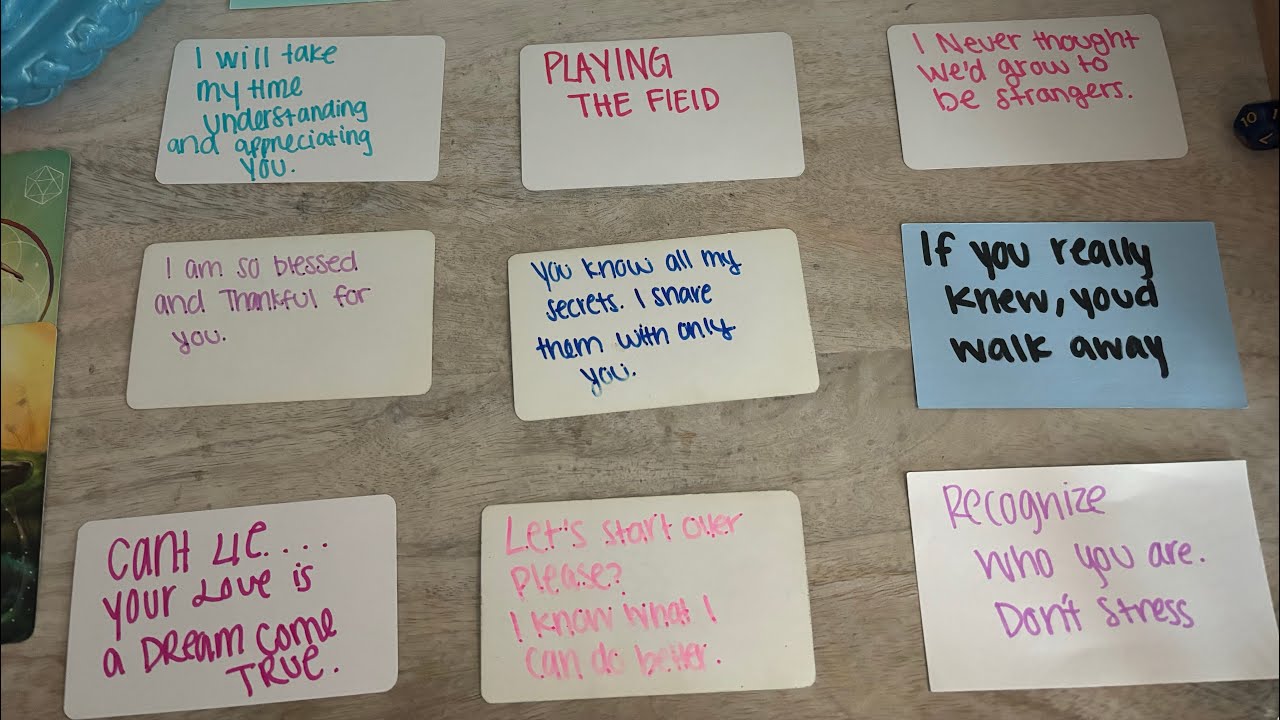 I will take
my time
understanding
and appreciating
you.
PLAYING
THE FIELD
I Never thought
We'd grow to
be strangers.
I am so blessed
and Thankful for
you.
You know all my
secrets. I share
them with only
you.
If you really
knew, youd
walk away
CANT LIE....
your Love is
a DREAM COME
TRUE.
Let's start over
please?
I know what I
can do better.
Recognize
who you are.
Don't stress
10